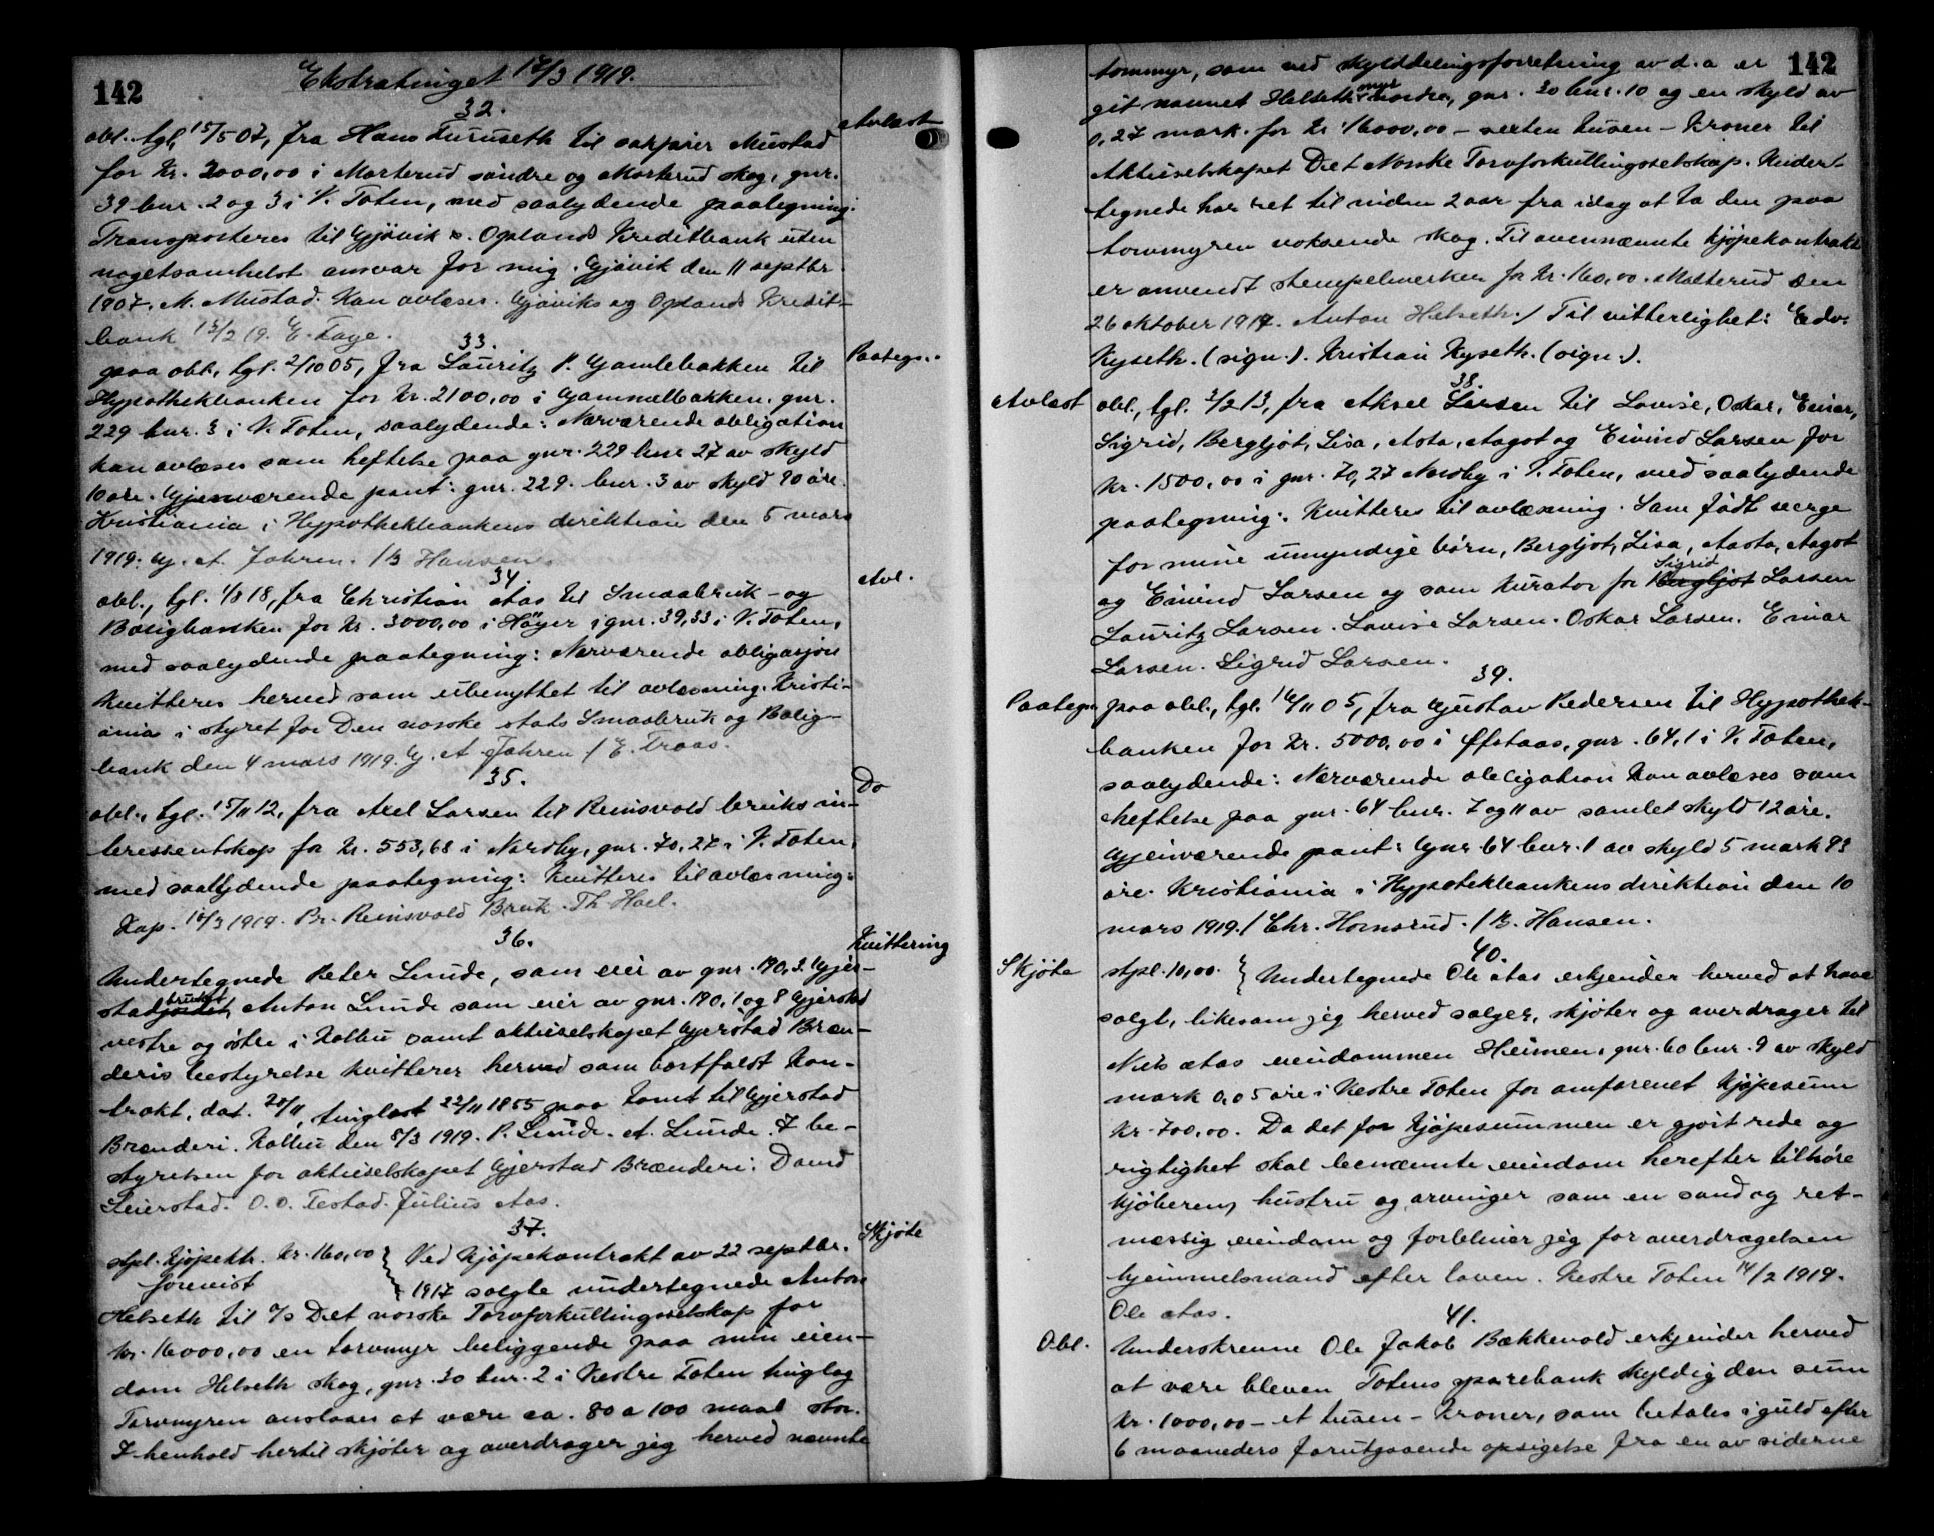 142
Ekstratinget 17/3 1919.
32.
Avlæst
obl. tgl. 15/5 07, fra Hans Furuseth til sakfører Mustad
for kr. 2000,00 i Marterud søndre og Marterud skog, gnr.
39 bnr. 2 og 3 i V. Toten, med saalydende paategning:
Transporteres til Gjøvik o. Oplands Kreditbank uten
nogetsomhelst ansvar for mig. Gjøvik den 11 septbr
1907. M. Mustad. Kan avlæses. Gjøviks og Oplands Kredit-
bank 15/2 19. E. Faye.
33.
Paategn.
paa obl., tgl. 2/10 05, fra Lauritz P. Gamlebakken til
Hypothekbanken for kr. 2100,00 i Gammelbakken, gnr.
229 bnr. 3 i V. Toten, saalydende: Nærværende obligation
kan avlæses som heftelse paa gnr. 229 bnr 27 av skyld
10 øre. Gjenværende pant: gnr. 229. bnr. 3 av skyld 90 øre.
Kristiania i Hypothekbankens direktion den 5 mars
1919. G. A. Jahren. / B Hansen.
34.
Avl.
obl., tgl. 1/8 18, fra Christian Aas til Smaabruk- og
Boligbanken for kr. 3000,00 i Høyer, gnr. 39,33 i V. Toten,
med saalydende paategning: Nærværende obligasjon
kvitteres herved som ubenyttet til avlæsning. Kristi-
ania i styret for Den norske stats Smaabruk og Bolig-
bank den 4 mars 1919. G. A. Jahren / E. Traas.
35.
Do
obl., tgl. 15/11 12, fra Axel Larsen til Reinsvold bruks in-
teressentskap for kr. 553,68 i Nordby, gnr. 70, 27 i V. Toten,
med saalydende paategning: Kvitteres til avlæsning.
Kap. 10/3 1919. Pr. Reinsvold Bruk. Th. Hoel.
36.
Kvittering
Undertegnede Peter Lunde, som eier av gnr. 190, 3 Gjer-
stadjordet bruket, Anton Lunde som eier av gnr. 190, 1 og 8 Gjerstad
vestre og østre i Kolbu samt aktieselskapet Gjerstad Bræn-
deris bestyrelse kvitterer herved som bortfaldt kon-
trakt, dat. 20/11, tinglæst 22/11 1855 paa tomt til Gjerstad
Brænderi. Kolbu den 8/3 1919. P. Lunde. A. Lunde. I be-
styrelsen for aktieselskapet Gjerstad Brænderi: David
Leierstad. O. O. Testad. Julius Aas.
37.
Skjøte
stpl. kjøpektr. kr. 160,00 { Ved kjøpekontrakt av 22 septbr.
forevist { 1917 solgte undertegnede Anton
Helseth til A/S Det norske Torvforkullingsselskap for
kr. 16000,00 en torvmyr beliggende paa min eien-
dom Helseth skog, gnr. 30 bnr. 2 i Vestre Toten tinglag
Torvmyren anslaaes at være ca. 80 a 100 maal stor.
I henhold hertil skjøter og averdrager jeg herved nævnte
142
tommyr, som ved skylddelingsforretning av d. a er
git navnet Helsethmyr nordre, gnr. 30 bnr. 10 og en skyld av
0,27 mark. for kr 16000,00 – sexten tusen – kroner til
Aktieselskapet Det Norske Torvforkullingsselskap. Under-
tegnede har ret til inden 2 aar fra idag at ta den paa
torvmyren voksende skog. Til ovennævnte kjøpekontrakt
er anvendt stempelmerker for kr. 160,00. Mætterud den
26 oktober 1917. Anton Helseth. / Til vitterlighet: Edv.
Kyseth. (sign.). Kristian Kyseth. (sign.).
38.
Avlæst
obl., tgl. 3/2 13, fra Aksel Larsen til Lovise, Oskar, Einar,
Sigrid, Bergljot, Lisa, Asta, Aagot og Eivind Larsen for
kr. 1500,00 i gnr. 70, 27 Nordby i V. Toten, med saalydende
paategning: Kvitteres til avlæsning. Som født verge
for mine umyndige børn, Bergljot, Lisa, Aasta, Aagot
og Eivind Larsen og som kurator for Bergljot Sigrid Larsen
Lauritz Larsen. Lovise Larsen. Oskar Larsen. Einar
Larsen. Sigrid Larsen.
39.
Paategn.
paa obl., tgl. 16/11 05, fra Gustav Pedersen til Hypothek-
banken for kr. 5000,00 i Øfstaas, gnr. 64, 1 i V. Toten,
saalydende: Nærværende obligation kan avlæses som
heftelse paa gnr. 64 bnr. 7 og 11 av samlet skyld 12 øre.
Gjenværende pant: Gnr 64 bnr. 1 av skyld 5 mark 93
øre. Kristiania i Hypotekbankens direktion den 10
mars 1919. / Chr. Hornsrud. / B. Hansen.
40.
Skjøte
stpl. 10,00. { Undertegnede Ole Aas erkjender herved at have
solgt, likesom jeg herved sælger, skjøter og averdrager til
Nils Aas eiendommen Heimen, gnr. 60 bnr. 9 av skyld
mark 0,05 øre i Vestre Toten for omforenet kjøpesum
kr. 700,00. Da det for kjøpesummen er gjort rede og
rigtighet skal benævnte eiendom herefter tilhøre
kjøberen, hustru og arvinger som en sand og ret-
mæssig eiendom og forbliver jeg for averdragelsen
hjemmelsmand efter loven. Vestre Toten 14/2 1919.
Ole Aas.
41.
Obl.
Underskrevne Ole Jakob Bækkevold erkjender herved
at være bleven Totens sparebank skyldig den sum
kr. 1000,00 – et tusen – kroner, som betales i guld efter
6 maaneders forutgaaende opsigelse fra en av siderne